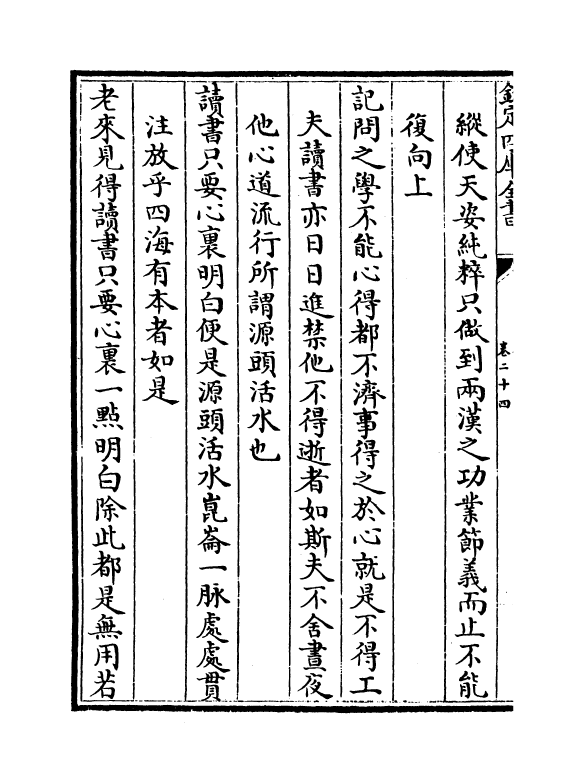 欽定四庫全書
卷二十四
縱使天姿純粹只做到兩漢之功業節義而止不能
復向上
記問之學不能心得都不濟事得之於心就是不得工
夫讀書亦日日進禁他不得逝者如斯夫不舍晝夜
他心道流行所謂源頭活水也
讀書只要心裏明白便是源頭活水崑崙一脉處處貫
注放乎四海有本者如是
老來見得讀書只要心裏一點明白除此都是無用若